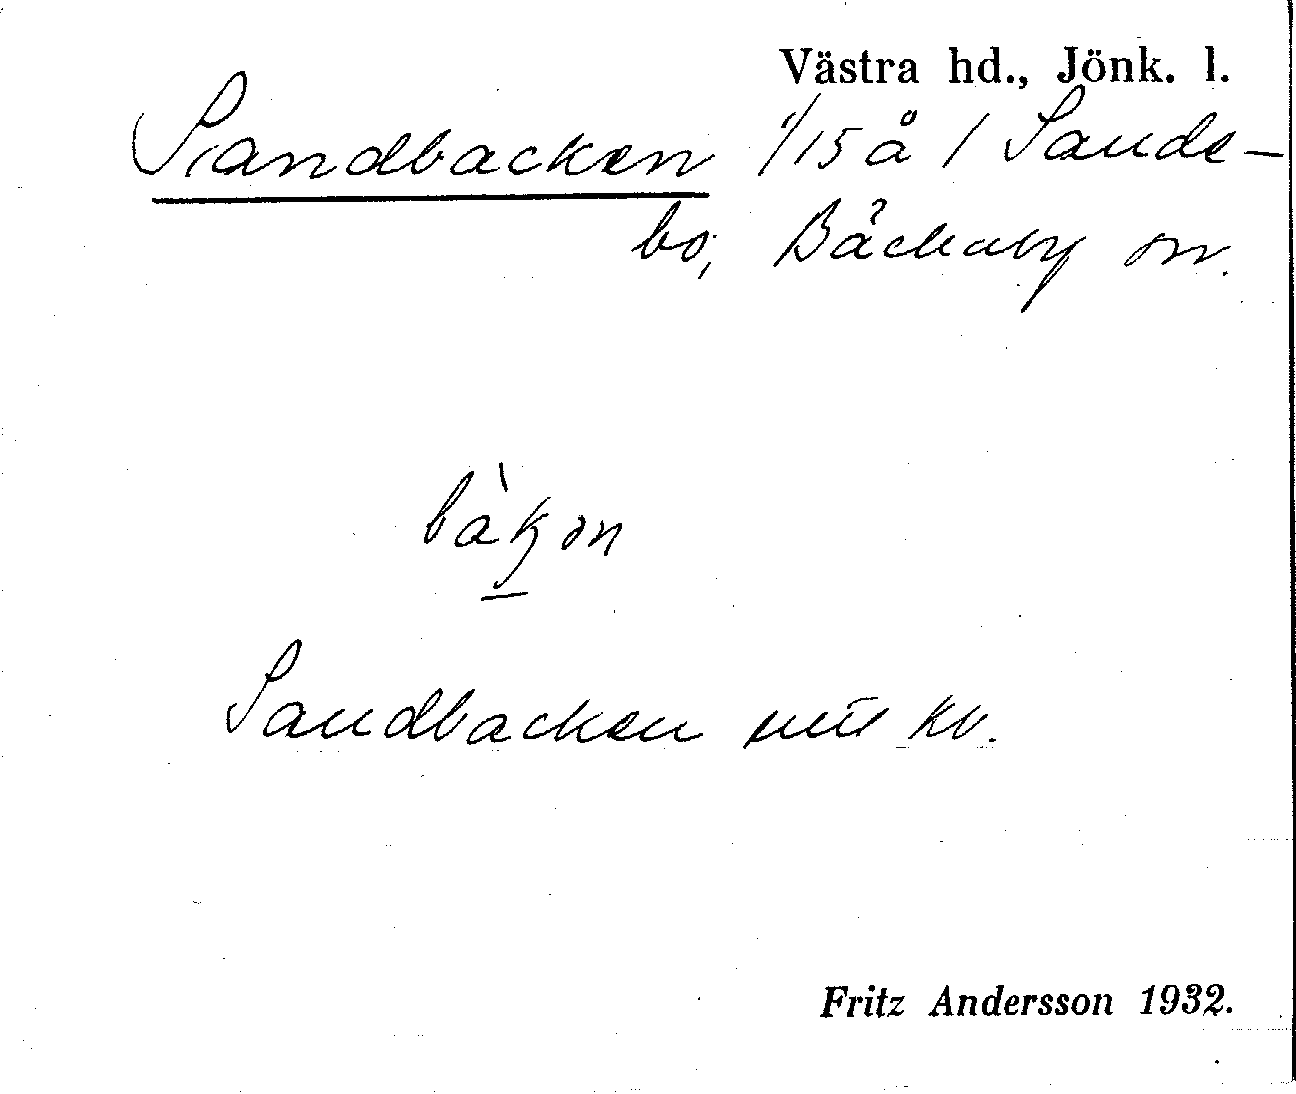 Västra hd., Jönk. l.
Sandbacken 1/15 å / Sande-
bo, Bäckaby sn.
Sandbacken kv.
Fritz Andersson 1932.